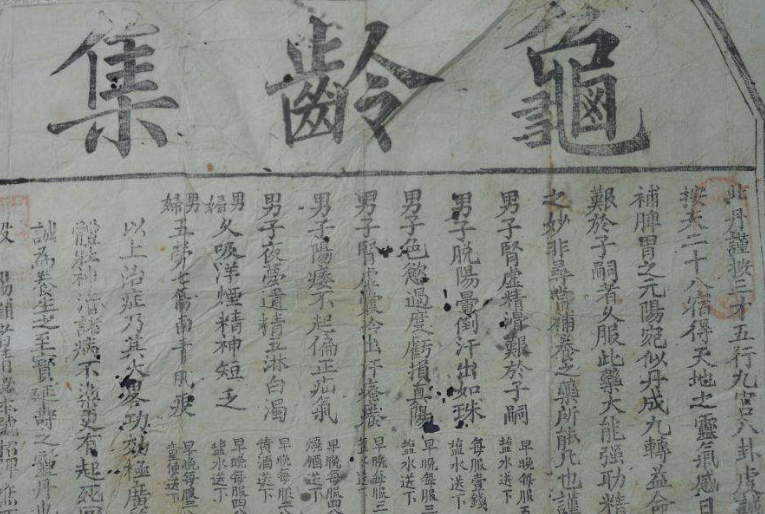 龜齡集
此丹謹按三才五行九宮八卦虔誠
按天二十八宿得天地之靈氣感日
補脾胃之元陽宛似丹成九轉益命
艱於子嗣者久服此藥大能強助精
之妙非尋常補養之藥所能凡也謹
男子腎虛精滑艱於子嗣 早晚每服五 鹽水送下
男子脫陽暈倒汗出如珠 每服壹錢 鹽水送下
男子色慾過度虧損真陽 早晚每服三 鹽水送下
男子腎虛 冷出汗 早晚每服三 水送下
男子陽痿不起偏正疝氣 早晚每服四 燒酒送下
男子夜夢遺精五淋白濁 早晚每服 黃酒送下
男婦久吸洋煙精神短乏 早晚每服四 鹽水送下
男婦五勞七傷 早晚每服三 童便送下
以上治症乃其大畧功效極廣
神 諸病不染更有起死回
誠為養生之至寶延壽之靈丹也